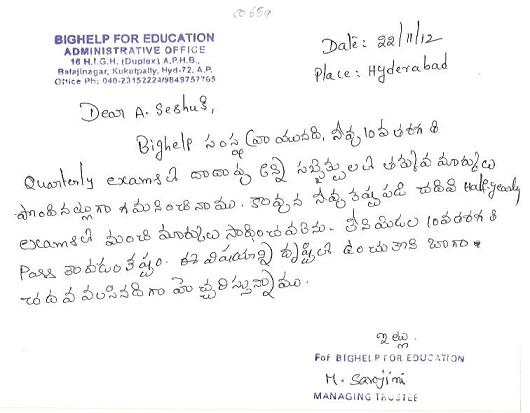 00659
BIGHELP FOR EDUCATION
ADMINISTRATIVE OFFICE
16 H.I.G.H. (Duplex) A.P.H.B.,
Balajinagar, Kukatpally, Hyd-72, A.P.
Office Ph: 040-23152224/9849757765
Date: 22/11/12
Place: Hyderabad
Dear A. Seshu K,
Bighelp సంస్థ వ్రాయునది, నీవు 10వ తరగతి
Quarterly examsలో దాదాపు అన్ని సబ్జెక్టులలో తక్కువ మార్కులు
పొందినట్లుగా గమనించినాము. కావున నీవు కష్టపడి చదివి Half-yearly
examsలో మంచి మార్కులు సాధించవలెను. లేనిచో 10వ తరగతి
Pass కావడం కష్టం. ఈ విషయాన్ని దృష్టిలో ఉంచుకొని బాగా
చదవవలసినదిగా హెచ్చరిస్తున్నాము.
ఇట్లు
For BIGHELP FOR EDUCATION
M. Sarojini
MANAGING TRUSTEE